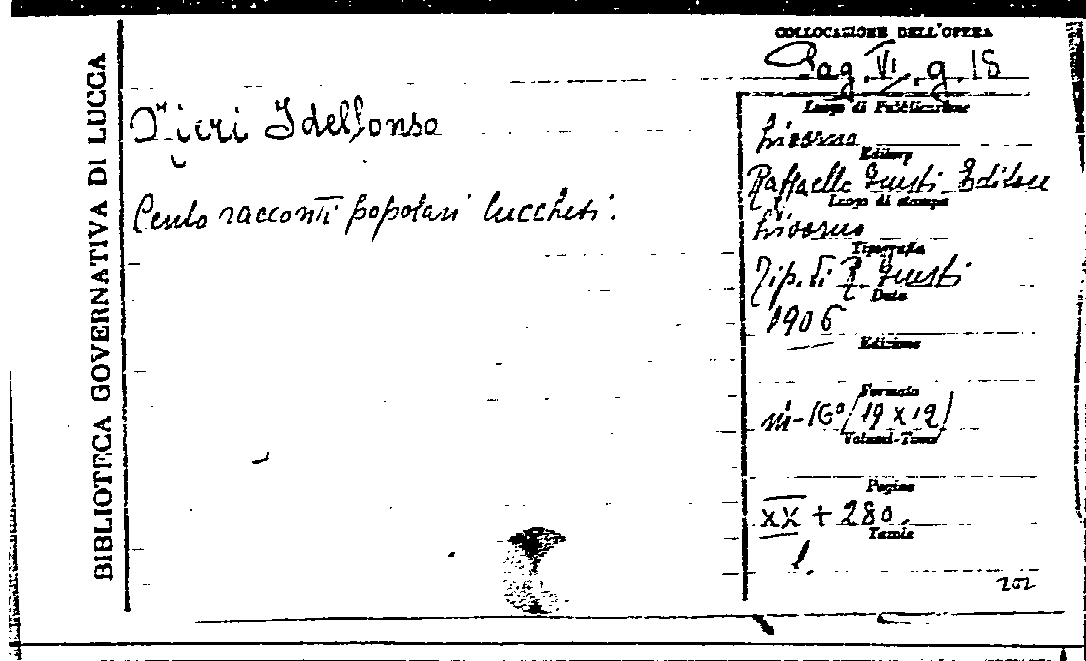 BIBLIOTECA GOVERNATIVA DI LUCCA
Nieri Idelfonso
Cento racconti popolari lucchesi.
COLLOCAZIONE DELL'OPERA
Pag. VI. g. 18
Luogo di Pubblicazione
Livorno
Editore
Raffaello Giusti Editore
Luogo di stampa
Livorno
Tipografia
Tip. di R. Giusti
Data
1906
Edizione
Formato
in-16° (19 x 12)
Volumi-Tomi
Pagine
XX + 280.
Tavole
1.
202